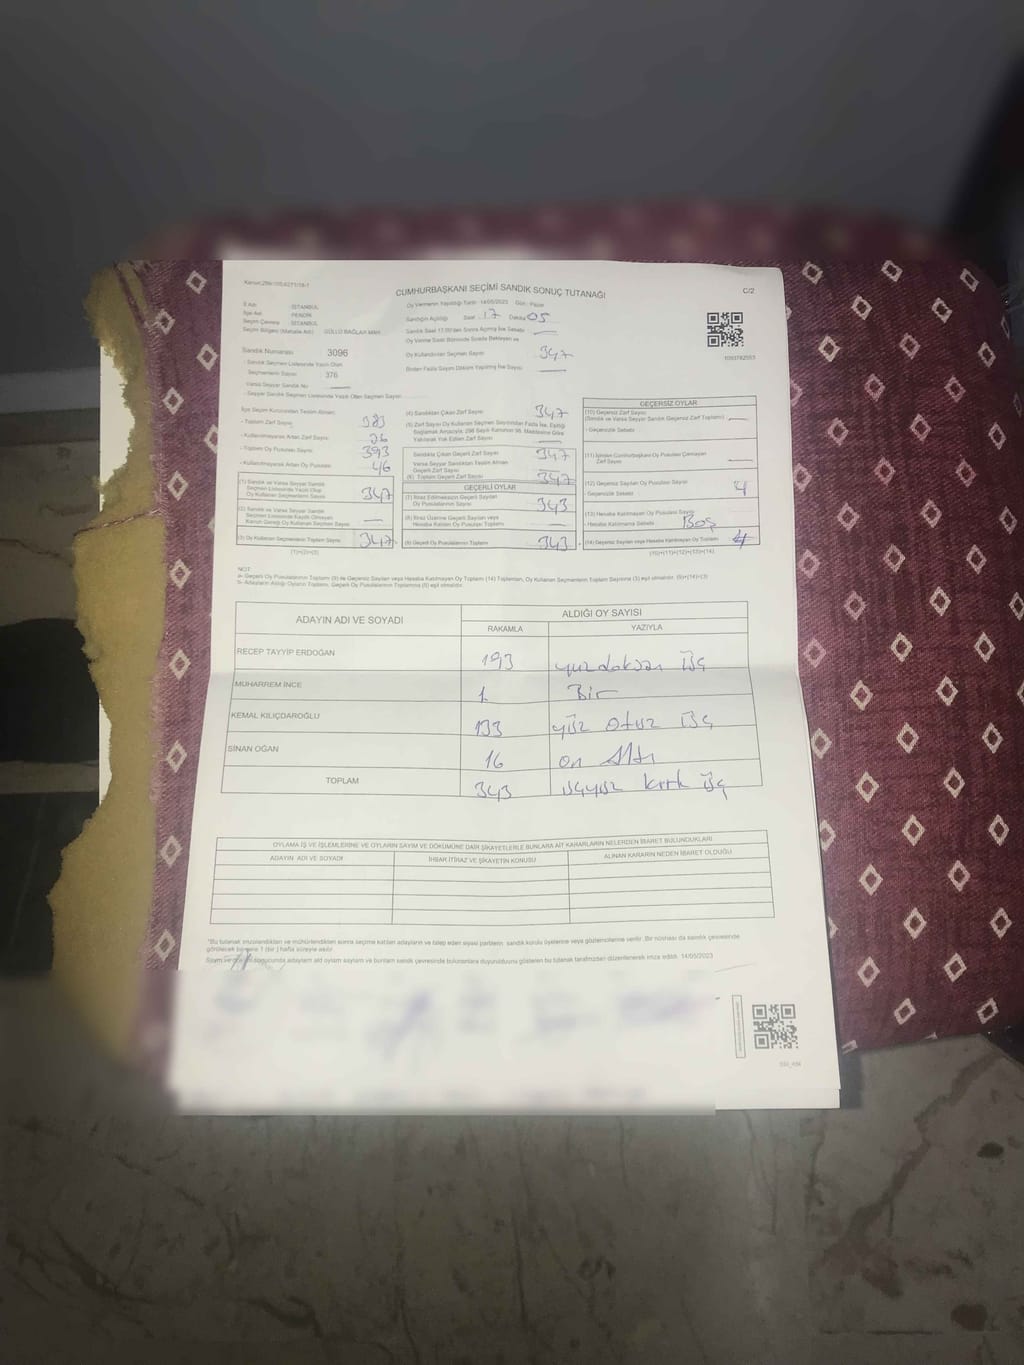 CUMHURBAŞKANI SEÇİMİ SANDIK SONUÇ TUTANAĞI
C/2
İl Adı : İSTANBUL
İlçe Adı : PENDİK
Seçim Çevresi : İSTANBUL
Seçim Bölgesi (Mahalle Adı) : GÜLLÜ BAĞLAR MAH.
Oy Vermenin Yapıldığı Tarih : 14/05/2023 Gün : Pazar
Sandığın Açıldığı Saat 17 Dakika 05
Sandık Saat 17.00'den Sonra Açılmış İse Sebebi
Oy Verme Saati Bitiminde Sırada Bekleyen ve
Oy Kullandırılan Seçmen Sayısı 347
Birden Fazla Sayım Döküm Yapılmış İse Sayısı
Sandık Numarası 3096
- Sandık Seçmen Listesinde Yazılı Olan
Seçmenlerin Sayısı 376
Varsa Seyyar Sandık No
- Seyyar Sandık Seçmen Listesinde Yazılı Olan Seçmen Sayısı
İlçe Seçim Kurulundan Teslim Alınan;
- Toplam Zarf Sayısı 383
- Kullanılmayarak Artan Zarf Sayısı
- Toplam Oy Pusulası Sayısı 393
- Kullanılmayarak Artan Oy Pusulası 46
(1) Sandık ve Varsa Seyyar Sandık
Seçmen Listesinde Yazılı Olup
Oy Kullanan Seçmenlerin Sayısı 347
(2) Sandık ve Varsa Seyyar Sandık
Seçmen Listesinde Kayıtlı Olmayan
Kanun Gereği Oy Kullanan Seçmen Sayısı
(3) Oy Kullanan Seçmenlerin Toplam Sayısı 347
(1)+(2)=(3)
(4) Sandıktan Çıkan Zarf Sayısı 347
(5) Zarf Sayısı Oy Kullanan Seçmen Sayısından Fazla İse, Eşitliği
Sağlamak Amacıyla; 298 Sayılı Kanunun 98. Maddesine Göre
Yakılarak Yok Edilen Zarf Sayısı
Sandıkta Çıkan Geçerli Zarf Sayısı 347
Varsa Seyyar Sandıktan Teslim Alınan
Geçerli Zarf Sayısı
(6) Toplam Geçerli Zarf Sayısı 347
GEÇERLİ OYLAR
(7) İtiraz Edilmeksizin Geçerli Sayılan
Oy Pusulalarının Sayısı 343
(8) İtiraz Üzerine Geçerli Sayılan veya
Hesaba Katılan Oy Pusulası Toplamı
(9) Geçerli Oy Pusulalarının Toplamı 343
GEÇERSİZ OYLAR
(10) Geçersiz Zarf Sayısı
(Sandık ve Varsa Seyyar Sandık Geçersiz Zarf Toplamı)
- Geçersizlik Sebebi
(11) İçinden Cumhurbaşkanı Oy Pusulası Çıkmayan
Zarf Sayısı
(12) Geçersiz Sayılan Oy Pusulası Sayısı 4
- Geçersizlik Sebebi
(13) Hesaba Katılmayan Oy Pusulası Sayısı
- Hesaba Katılmama Sebebi Boş
(14) Geçersiz Sayılan veya Hesaba Katılmayan Oy Toplamı 4
(10)+(11)+(12)+(13)=(14)
NOT:
a- Geçerli Oy Pusulalarının Toplamı (9) ile Geçersiz Sayılan veya Hesaba Katılmayan Oy Toplamı (14) Toplamları, Oy Kullanan Seçmenlerin Toplam Sayısına (3) eşit olmalıdır. (9)+(14)=(3)
b- Adayların Aldığı Oyların Toplamı, Geçerli Oy Pusulalarının Toplamına (9) eşit olmalıdır.
ADAYIN ADI VE SOYADI
ALDIĞI OY SAYISI
RAKAMLA YAZIYLA
RECEP TAYYİP ERDOĞAN 193 yüzdoksan üç
MUHARREM İNCE 1 Bir
KEMAL KILIÇDAROĞLU 133 yüz otuz üç
SİNAN OĞAN 16 on Altı
TOPLAM 343 üçyüz kırk üç
OYLAMA İŞ VE İŞLEMLERİNE VE OYLARIN SAYIM VE DÖKÜMÜNE DAİR ŞİKAYETLERLE BUNLARA AİT KARARLARIN NELERDEN İBARET BULUNDUKLARI
ADAYIN ADI VE SOYADI İHBAR İTİRAZ VE ŞİKAYETİN KONUSU ALINAN KARARIN NEDEN İBARET OLDUĞU
*Bu tutanak imzalandıktan ve mühürlendikten sonra seçime katılan adayların ve talep eden siyasi partilerin sandık kurulu üyelerine veya gözlemcilerine verilir. Bir nüshası da sandık çevresinde
görülecek bir yere 1 (bir) hafta süreyle asılır.
bu tutanak tarafımızdan düzenlenerek imza edildi. 14/05/2023